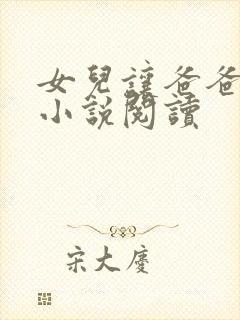 女兒讓爸爸
小說閱讀
宋大慶